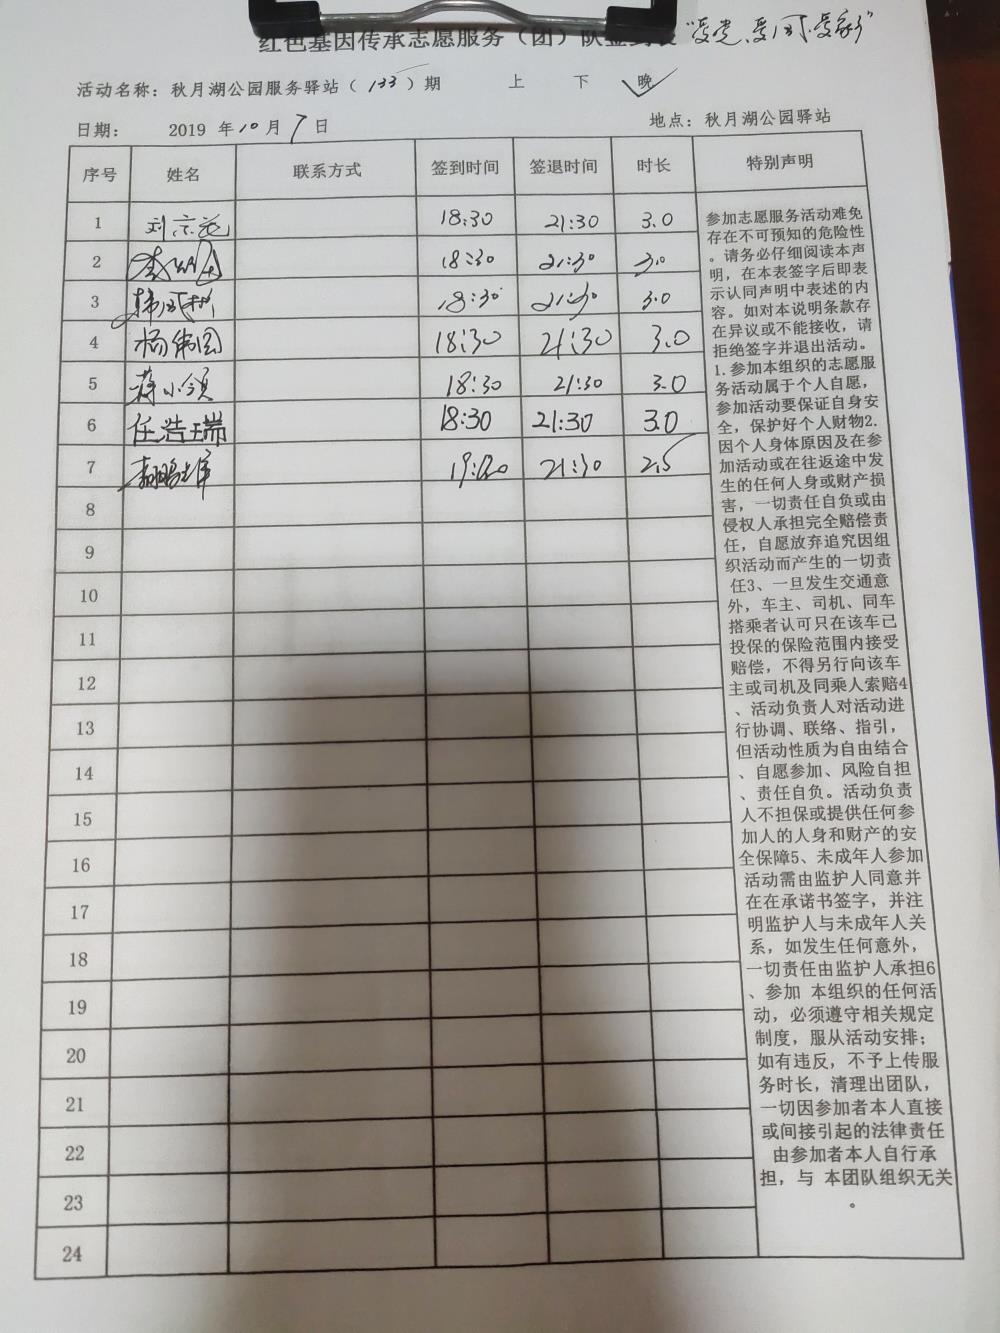 红色基因传承志愿服务（团）队签到表 “爱党、爱国、爱家”
活动名称：秋月湖公园服务驿站（133）期 上 下 晚
日期： 2019 年 10 月 7 日 地点：秋月湖公园驿站
序号 姓名 联系方式 签到时间 签退时间 时长 特别声明
1 18:30 21:30 3.0
2 18:30 21:30 3.0
3 18:30 21:30 3.0
4 杨伟国 18:30 21:30 3.0
5 蒋小领 18:30 21:30 3.0
6 任浩瑞 18:30 21:30 3.0
7 19:00 21:30 2.5
8
9
10
11
12
13
14
15
16
17
18
19
20
21
22
23
24
参加志愿服务活动难免
存在不可预知的危险性
。请务必仔细阅读本声
明，在本表签字后即表
示认同声明中表述的内
容。如对本说明条款存
在异议或不能接收，请
拒绝签字并退出活动。
1.参加本组织的志愿服
务活动属于个人自愿，
参加活动要保证自身安
全，保护好个人财物2.
因个人身体原因及在参
加活动或在往返途中发
生的任何人身或财产损
害，一切责任自负或由
侵权人承担完全赔偿责
任，自愿放弃追究因组
织活动而产生的一切责
任3、一旦发生交通意
外，车主、司机、同车
搭乘者认可只在该车已
投保的保险范围内接受
赔偿，不得另行向该车
主或司机及同乘人索赔4
、活动负责人对活动进
行协调、联络、指引，
但活动性质为自由结合
、自愿参加、风险自担
、责任自负。活动负责
人不担保或提供任何参
加人的人身和财产的安
全保障5、未成年人参加
活动需由监护人同意并
在在承诺书签字，并注
明监护人与未成年人关
系，如发生任何意外，
一切责任由监护人承担6
、参加 本组织的任何活
动，必须遵守相关规定
制度，服从活动安排；
如有违反，不予上传服
务时长，清理出团队，
一切因参加者本人直接
或间接引起的法律责任
由参加者本人自行承
担，与 本团队组织无关
。